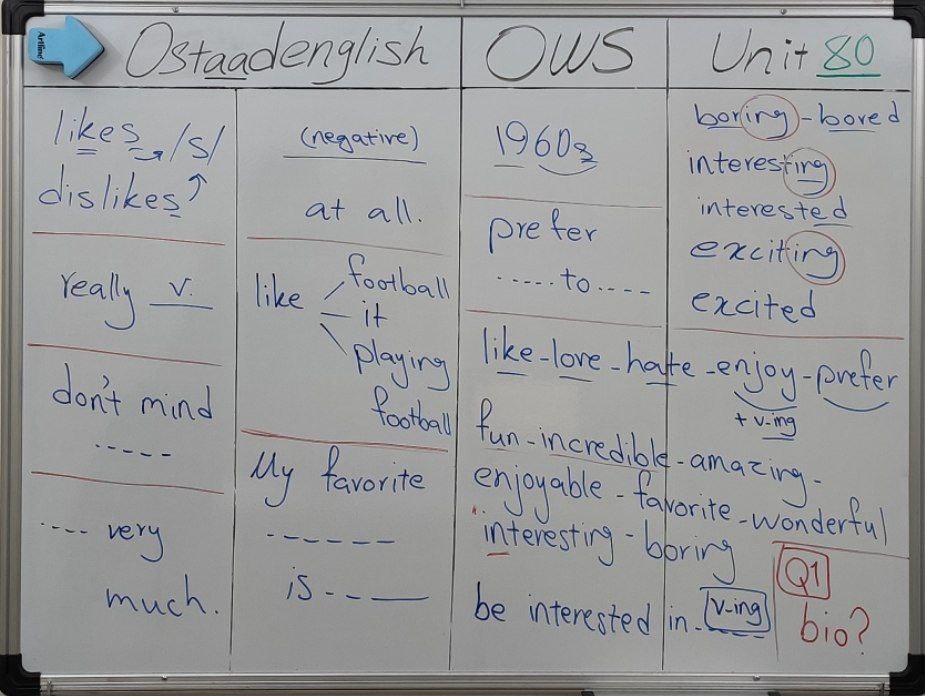 Artline
Ostaadenglish
OWS
Unit 80
likes → /s/
dislikes
really v.
don't mind
-----
---- very
much.
(negative)
at all.
like
football
it
playing
football
My favorite
------
is -----
1960s
prefer
.....to....
boring - bored
interesting
interested
exciting
excited
like - love - hate - enjoy - prefer
+ v-ing
fun - incredible - amazing -
enjoyable - favorite - wonderful
interesting - boring
be interested in v-ing
Q1
bio?